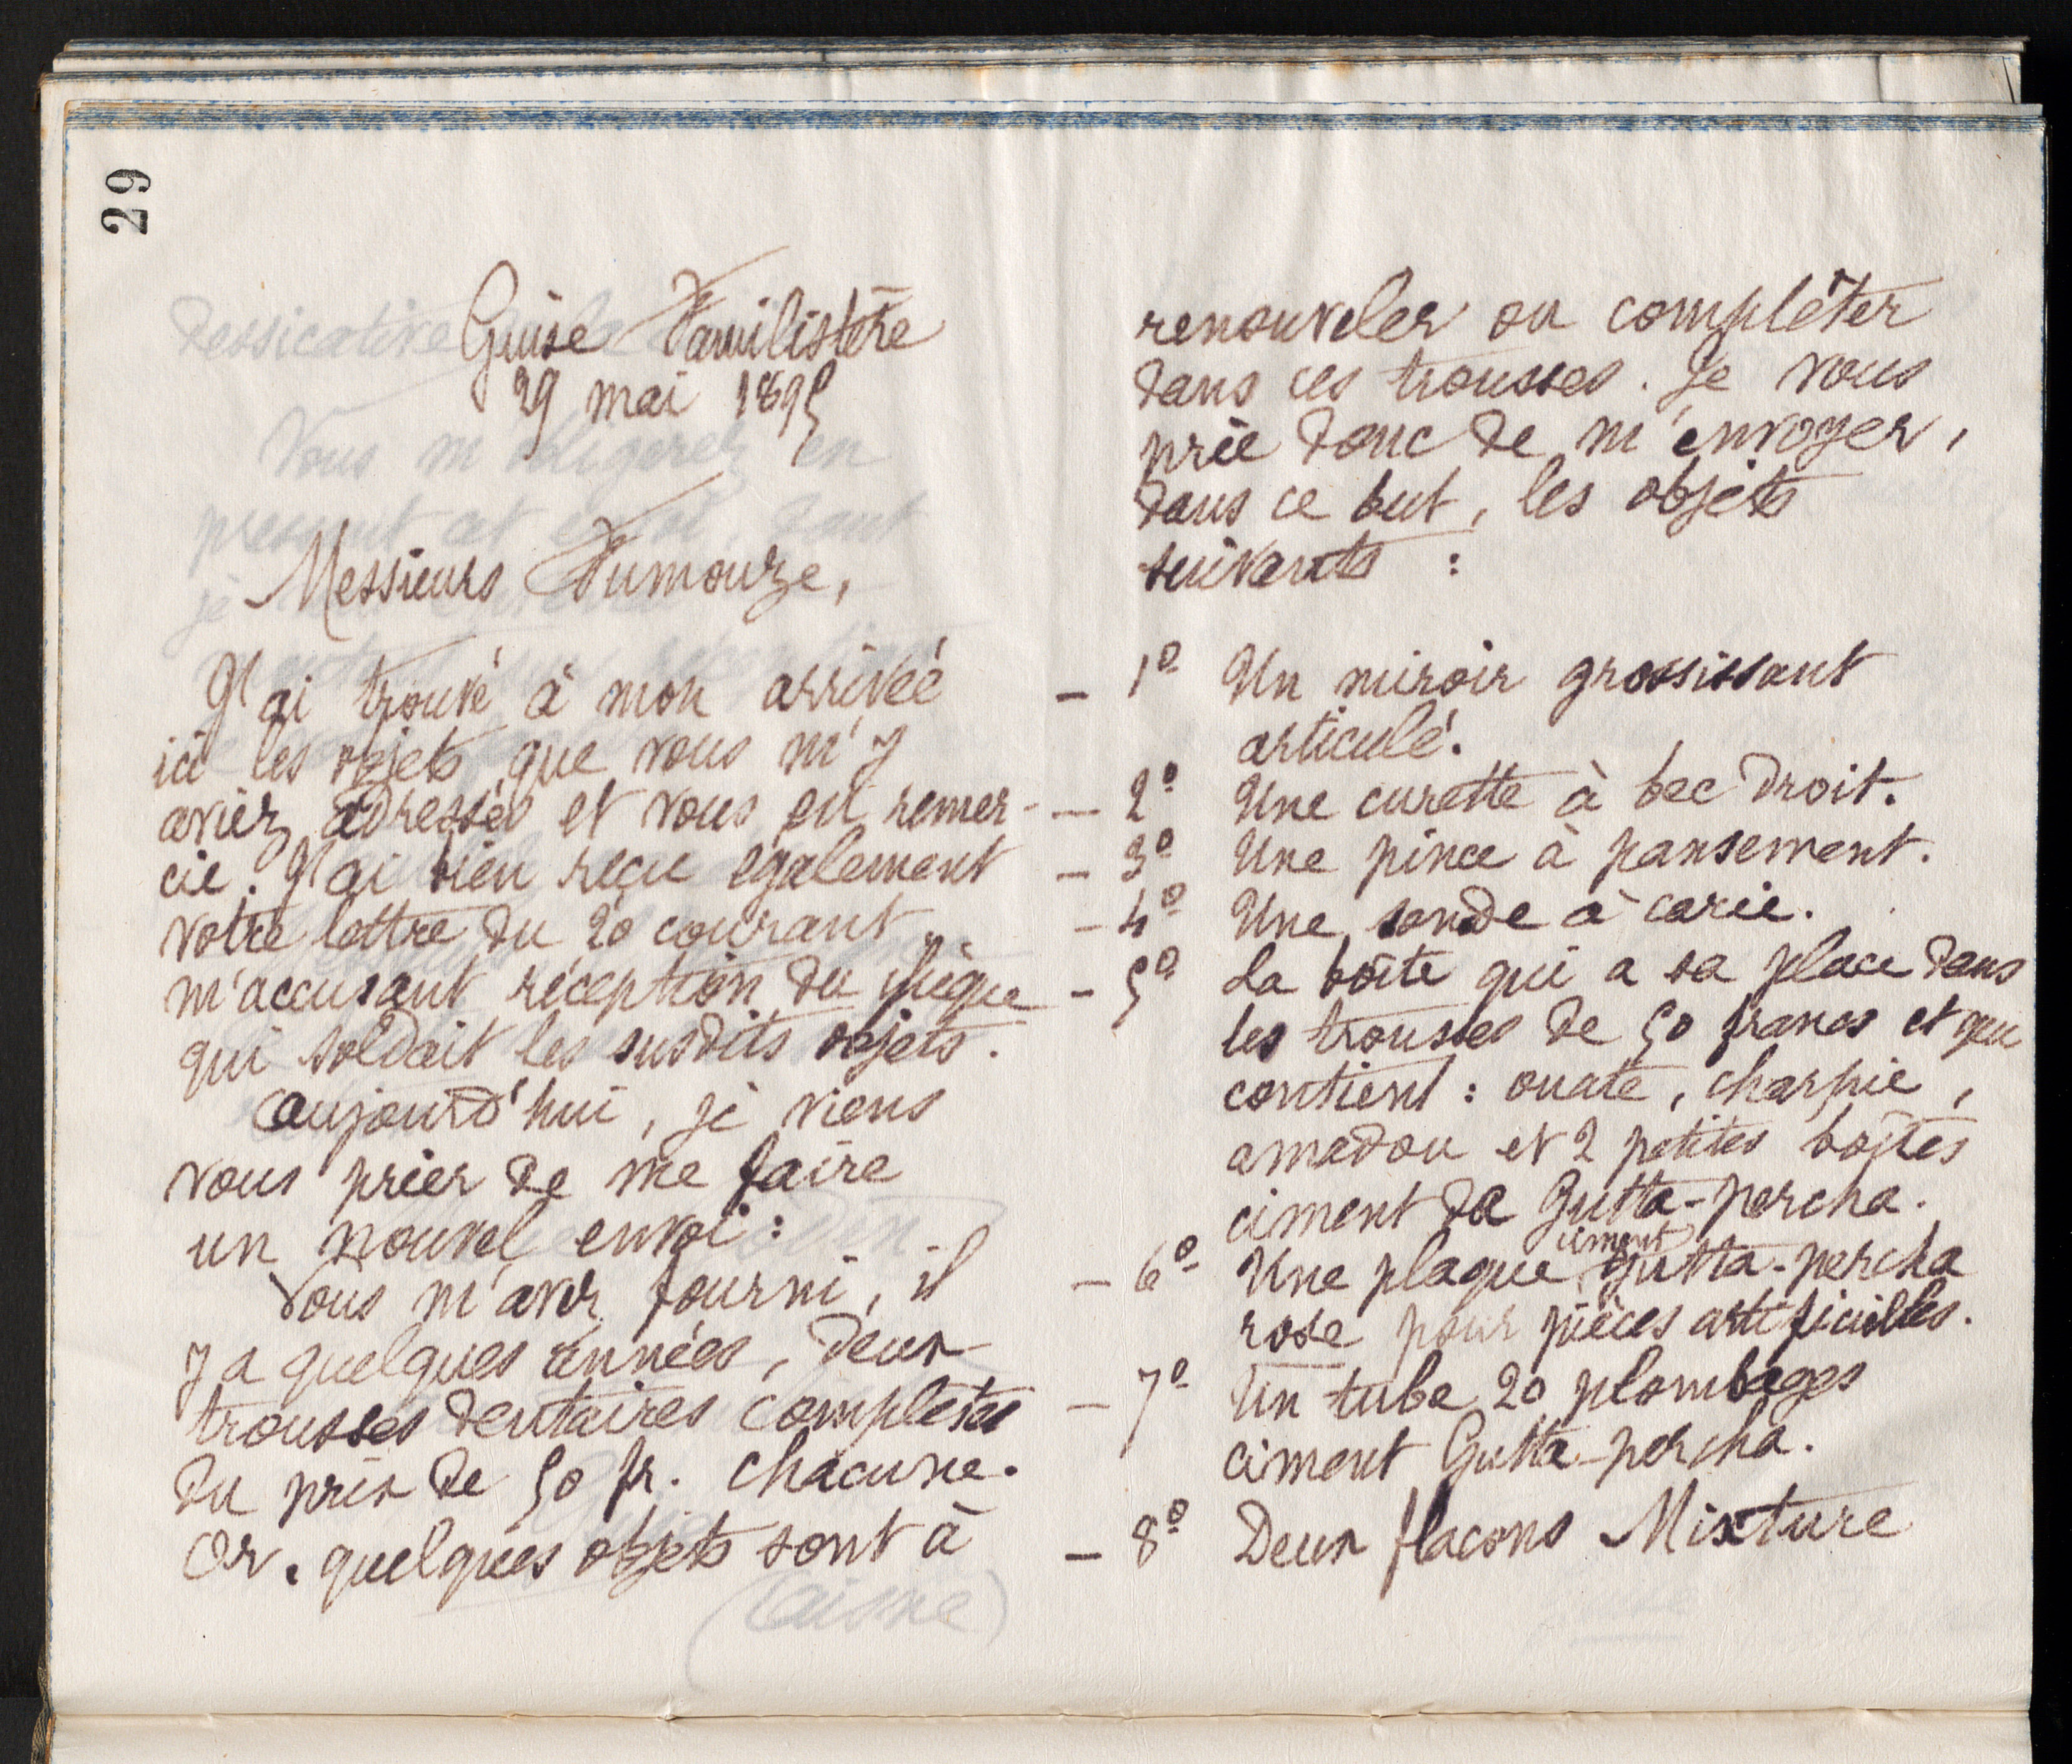 29
Guise Familistère
29 mai 1895
Messieurs Fumouze,
J'ai trouvé à mon arrivée
ici les objets que vous m'y
aviez adressés et vous en remer-
cie. J'ai bien reçu également
votre lettre du 20 courant
m'accusant réception du chèque
qui soldait les susdits objets.
Aujourd'hui, je viens
vous prier de me faire
un nouvel envoi :
Vous m'avez fourni, il
y a quelques années, deux
trousses dentaires complètes
du prix de 50 fr. chacune.
Or, quelques objets sont à
renouveler ou compléter
dans ces trousses. Je vous
prie donc de m'envoyer,
dans ce but, les objets
suivants :
- 1º Un miroir grossissant
articulé.
- 2º Une curette à bec droit.
- 3º Une pince à pansement.
- 4º Une sonde à carie.
- 5º La boîte qui a sa place dans
les trousses de 50 francs et qui
contient : ouate, charpie,
amadou et 2 petites boîtes
ciment de Gutta-percha.
- 6º Une plaque ciment gutta-percha
rose pour pièces artificielles.
- 7º Un tube 20 plombages
ciment Gutta-percha.
- 8º Deux flacons Mixture